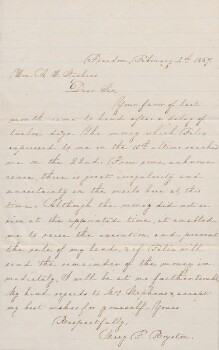 February 4th 1867
Mrs. A. H. Stephens
Dear Sir
Your favor of last
month came to hand after a delay of
twelve days. The money which Felix
expressed to me on the 15th ultimo reached
me on the 22nd. From some unknown
cause, there is great irregularity and
uncertainty in the mails here at this
time. Although the money did not arrive
at the appointed time, it enabled
me to the execution, and prevent
the sale of my land, & if Felix will
send the remainder of the money immediately,
it will be at no farther trouble
My kind regards to Mrs Stephens & accept
my best wishes for yourself. Yours
Respectfully,